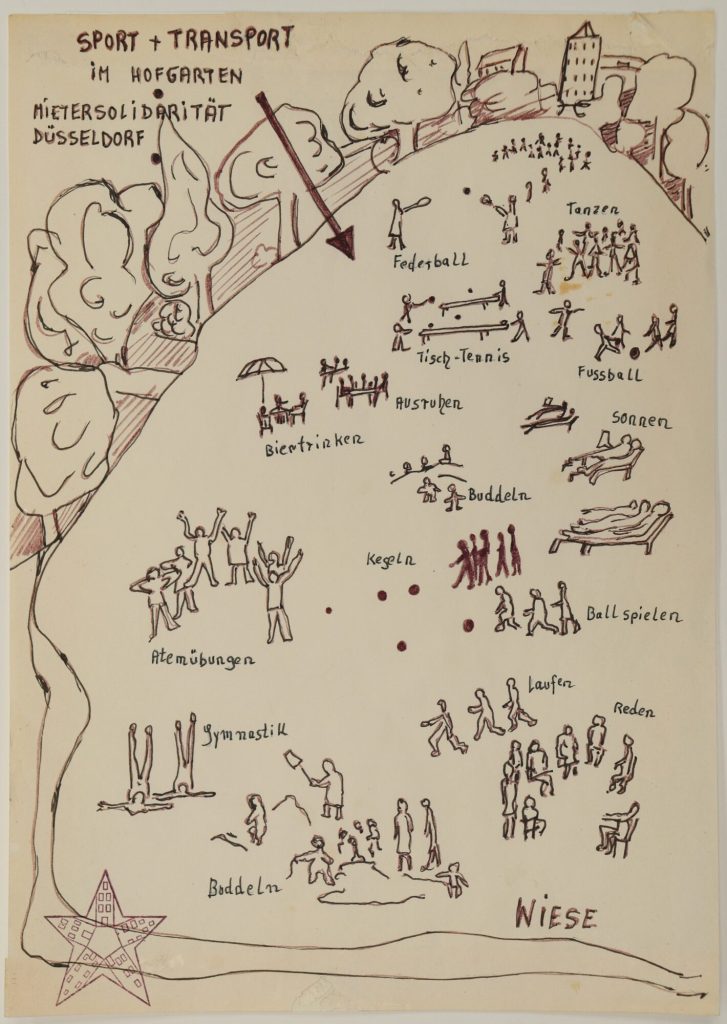 SPORT + TRANSPORT
iM HOFGARTEN
MIETERSOLIDARITÄT
DÜSSELDORF
Tanzen
Federball
Tisch-Tennis
Fussball
Ausruhen
Sonnen
Biertrinken
Buddeln
Kegeln
Ballspielen
Atemübungen
Laufen
Reden
Gymnastik
Buddeln
WIESE